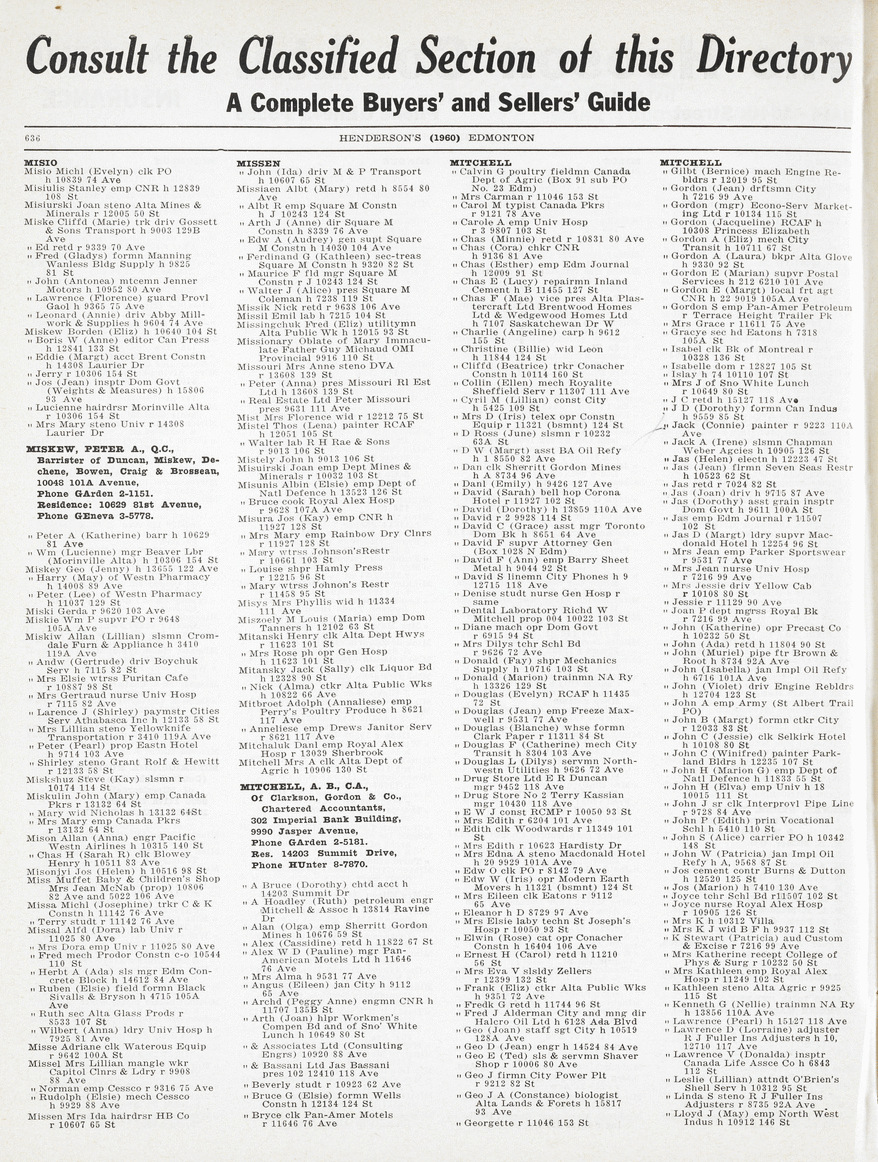 Consult the Classified Section of this Directory
A Complete Buyers' and Sellers' Guide
636
HENDERSON'S (1960) EDMONTON
MISIO
Misio Michl (Evelyn) clk PO
h 10839 74 Ave
Misiulis Stanley emp CNR h 12839
108 St
Misiurski Joan steno Alta Mines &
Minerals r 12005 50 St
Miske Cliffd (Marie) trk driv Gossett
& Sons Transport h 9003 129B
Ave
" Ed retd r 9339 70 Ave
" Fred (Gladys) formn Manning
Wanless Bldg Supply h 9825
81 St
" John (Antonea) mtcemn Jenner
Motors h 10952 80 Ave
" Lawrence (Florence) guard Provl
Gaol h 9365 75 Ave
" Leonard (Annie) driv Abby Mill-
work & Supplies h 9604 74 Ave
Miskew Borden (Eliz) h 10640 104 St
" Boris W (Anne) editor Can Press
h 12841 133 St
" Eddie (Margt) acct Brent Constn
h 14308 Laurier Dr
" Jerry r 10306 154 St
" Jos (Jean) insptr Dom Govt
(Weights & Measures) h 15806
93 Ave
" Lucienne hairdrsr Morinville Alta
r 10306 154 St
" Mrs Mary steno Univ r 14308
Laurier Dr
MISKEW, PETER A., Q.C.,
Barrister of Duncan, Miskew, De-
chene, Bowen, Craig & Brosseau,
10048 101A Avenue,
Phone GArden 2-1151.
Residence: 10629 81st Avenue,
Phone GEneva 3-5778.
" Peter A (Katherine) barr h 10629
81 Ave
" Wm (Lucienne) mgr Beaver Lbr
(Morinville Alta) h 10306 154 St
Miskey Geo (Jenny) h 13655 122 Ave
" Harry (May) of Westn Pharmacy
h 14008 89 Ave
" Peter (Lee) of Westn Pharmacy
h 11037 129 St
Miski Gerda r 9620 103 Ave
Miskie Wm P supvr PO r 9648
105A Ave
Miskiw Allan (Lillian) slsmn Crom-
dale Furn & Appliance h 3410
119A Ave
" Andw (Gertrude) driv Boychuk
Serv h 7115 82 St
" Mrs Elsie wtrss Puritan Cafe
r 10887 98 St
" Mrs Gertraud nurse Univ Hosp
r 7115 82 Ave
" Larence J (Shirley) paymstr Cities
Serv Athabasca Inc h 12133 58 St
" Mrs Lillian steno Yellowknife
Transportation r 3410 119A Ave
" Peter (Pearl) prop Eastn Hotel
h 9714 103 Ave
" Shirley steno Grant Rolf & Hewitt
r 12133 58 St
Miskshuz Steve (Kay) slsmn r
10174 114 St
Miskulin John (Mary) emp Canada
Pkrs r 13132 64 St
" Mary wid Nicholas h 13132 64St
" Mrs Mary emp Canada Pkrs
r 13132 64 St
Mison Allan (Anna) engr Pacific
Westn Airlines h 10315 140 St
" Chas H (Sarah R) clk Blowey
Henry h 10511 83 Ave
Misonjyi Jos (Helen) h 10516 98 St
Miss Muffet Baby & Children's Shop
Mrs Jean McNab (prop) 10806
82 Ave and 5022 106 Ave
Missa Michl (Josephine) trkr C & K
Constn h 11142 76 Ave
" Terry studt r 11142 76 Ave
Missal Alfd (Dora) lab Univ r
11025 80 Ave
" Mrs Dora emp Univ r 11025 80 Ave
" Fred mech Prodor Constn c-o 10544
110 St
" Herbt A (Ada) sls mgr Edm Con-
crete Block h 14612 84 Ave
" Ruben (Elsie) field formn Black
Sivalls & Bryson h 4715 105A
Ave
" Ruth sec Alta Glass Prods r
8533 107 St
" Wilbert (Anna) ldry Univ Hosp h
7925 81 Ave
Misse Adriane clk Waterous Equip
r 9642 100A St
Missel Mrs Lillian mangle wkr
Capitol Clnrs & Ldry r 9908
88 Ave
" Norman emp Cessco r 9316 75 Ave
" Rudolph (Elsie) mech Cessco
h 9929 88 Ave
Missen Mrs Ida hairdrsr HB Co
r 10607 65 St
MISSEN
" John (Ida) driv M & P Transport
h 10607 65 St
Missiaen Albt (Mary) retd h 8554 80
Ave
" Albt R emp Square M Constn
h J 10243 124 St
" Arth J (Anne) dir Square M
Constn h 8339 76 Ave
" Edw A (Audrey) gen supt Square
M Constn h 14030 104 Ave
" Ferdinand G (Kathleen) sec-treas
Square M Constn h 9320 82 St
" Maurice F fld mgr Square M
Constn r J 10243 124 St
" Walter J (Alice) pres Square M
Coleman h 7238 119 St
Missik Nick retd r 9638 106 Ave
Missil Emil lab h 7215 104 St
Missingchuk Fred (Eliz) utilitymn
Alta Public Wk h 12015 93 St
Missionary Oblate of Mary Immacu-
late Father Guy Michaud OMI
Provincial 9916 110 St
Missouri Mrs Anne steno DVA
r 13608 139 St
" Peter (Anna) pres Missouri Rl Est
Ltd h 13608 139 St
" Real Estate Ltd Peter Missouri
pres 9631 111 Ave
Mist Mrs Florence wid r 12212 75 St
Mistel Thos (Lena) painter RCAF
h 12051 105 St
" Walter lab R H Rae & Sons
r 9013 106 St
Mistely John h 9013 106 St
Misuirski Joan emp Dept Mines &
Minerals r 10032 103 St
Misunis Albin (Elsie) emp Dept of
Natl Defence h 13523 126 St
" Bruce cook Royal Alex Hosp
r 9628 107A Ave
Misura Jos (Kay) emp CNR h
11927 128 St
" Mrs Mary emp Rainbow Dry Clnrs
r 11927 128 St
" Mary wtrss Johnson'sRestr
r 10661 103 St
" Louise shpr Hamly Press
r 12215 96 St
" Mary wtrss Johnon's Restr
r 11458 95 St
Misys Mrs Phyllis wid h 11334
111 Ave
Miszoely M Louis (Maria) emp Dom
Tanners h 12102 63 St
Mitanski Henry clk Alta Dept Hwys
r 11623 101 St
" Mrs Rose ph opr Gen Hosp
h 11623 101 St
Mitansky Jack (Sally) clk Liquor Bd
h 12328 90 St
" Nick (Alma) ctkr Alta Public Wks
h 10822 66 Ave
Mitbroet Adolph (Annaliese) emp
Perry's Poultry Produce h 8621
117 Ave
" Anneliese emp Drews Janitor Serv
r 8621 117 Ave
Mitchaluk Danl emp Royal Alex
Hosp r 13039 Sherbrook
Mitchell Mrs A clk Alta Dept of
Agric h 10906 130 St
MITCHELL, A. B., C.A.,
Of Clarkson, Gordon & Co.,
Chartered Accountants,
302 Imperial Bank Building,
9990 Jasper Avenue,
Phone GArden 2-5181.
Res. 14203 Summit Drive,
Phone HUnter 8-7870.
" A Bruce (Dorothy) chtd acct h
14203 Summit Dr
" A Hoadley (Ruth) petroleum engr
Mitchell & Assoc h 13814 Ravine
Dr
" Alan (Olga) emp Sherritt Gordon
Mines h 10676 59 St
" Alex (Cassidine) retd h 11822 67 St
" Alex W D (Pauline) mgr Pan-
American Motels Ltd h 11646
76 Ave
" Mrs Alma h 9531 77 Ave
" Angus (Eileen) jan City h 9112
65 Ave
" Archd (Peggy Anne) engmn CNR h
11707 135B St
" Arth (Joan) hlpr Workmen's
Compen Bd and of Sno' White
Lunch h 10649 80 St
" & Associates Ltd (Consulting
Engrs) 10920 88 Ave
" & Bassani Ltd Jas Bassani
pres 102 12410 118 Ave
" Beverly studt r 10923 62 Ave
" Bruce G (Elsie) formn Wells
Constn h 12134 124 St
" Bryce clk Pan-Amer Motels
r 11646 76 Ave
MITCHELL
" Calvin G poultry fieldmn Canada
Dept of Agric (Box 91 sub PO
No. 23 Edm)
" Mrs Carman r 11046 153 St
" Carol M typist Canada Pkrs
r 9121 78 Ave
" Carole A emp Univ Hosp
r 3 9807 103 St
" Chas (Minnie) retd r 10831 80 Ave
" Chas (Cora) chkr CNR
h 9136 81 Ave
" Chas (Esther) emp Edm Journal
h 12009 91 St
" Chas E (Lucy) repairmn Inland
Cement h B 11455 127 St
" Chas F (Mae) vice pres Alta Plas-
tercraft Ltd Brentwood Homes
Ltd & Wedgewood Homes Ltd
h 7107 Saskatchewan Dr W
" Charlie (Angeline) carp h 9612
155 St
" Christine (Billie) wid Leon
h 11844 124 St
" Cliffd (Beatrice) trkr Conacher
Constn h 10114 160 St
" Collin (Ellen) mech Royalite
Sheffield Serv r 11307 111 Ave
" Cyril M (Lillian) const City
h 5425 109 St
" Mrs D (Iris) telex opr Constn
Equip r 11321 (bsmnt) 124 St
" D Ross (June) slsmn r 10232
63A St
" D W (Margt) asst BA Oil Refy
h 1 8550 82 Ave
" Dan clk Sherritt Gordon Mines
h A 8734 96 Ave
" Danl (Emily) h 9426 127 Ave
" David (Sarah) bell hop Corona
Hotel r 11927 102 St
" David (Dorothy) h 13859 110A Ave
" David r 2 9928 114 St
" David C (Grace) asst mgr Toronto
Dom Bk h 8651 64 Ave
" David F supvr Attorney Gen
(Box 1028 N Edm)
" David F (Ann) emp Barry Sheet
Metal h 9044 92 St
" David S linemn City Phones h 9
12715 118 Ave
" Denise studt nurse Gen Hosp r
same
" Dental Laboratory Richd W
Mitchell prop 004 10022 103 St
" Diane mach opr Dom Govt
r 6915 94 St
" Mrs Dilys tchr Schl Bd
r 9626 72 Ave
" Donald (Fay) shpr Mechanics
Supply h 10716 103 St
" Donald (Marion) trainmn NA Ry
h 13326 129 St
" Douglas (Evelyn) RCAF h 11435
72 St
" Douglas (Jean) emp Freeze Max-
well r 9531 77 Ave
" Douglas (Blanche) whse formn
Clark Paper r 11311 84 St
" Douglas F (Catherine) mech City
Transit h 8304 103 Ave
" Douglas L (Dilys) servmn North-
westn Utilities h 9626 72 Ave
" Drug Store Ltd E R Duncan
mgr 9452 118 Ave
" Drug Store No 2 Terry Kassian
mgr 10430 118 Ave
" E W J const RCMP r 10050 93 St
" Mrs Edith r 6204 101 Ave
" Edith clk Woodwards r 11349 101
St
" Mrs Edith r 10623 Hardisty Dr
" Mrs Edna A steno Macdonald Hotel
h 20 9929 101A Ave
" Edw O clk PO r 8142 79 Ave
" Edw W (Iris) opr Modern Earth
Movers h 11321 (bsmnt) 124 St
" Mrs Eileen clk Eatons r 9112
65 Ave
" Eleanor h D 8729 97 Ave
" Mrs Elsie laby techn St Joseph's
Hosp r 10050 93 St
" Elwin (Rose) cat opr Conacher
Constn h 16404 106 Ave
" Ernest H (Carol) retd h 11210
56 St
" Mrs Eva V slsldy Zellers
r 12399 132 St
" Frank (Eliz) ctkr Alta Public Wks
h 9351 72 Ave
" Fredk G retd h 11744 96 St
" Fred J Alderman City and mng dir
Halcro Oil Ltd h 6128 Ada Blvd
" Geo (Joan) staff sgt City h 10519
128A Ave
" Geo D (Jean) engr h 14524 84 Ave
" Geo E (Ted) sls & servmn Shaver
Shop r 10006 80 Ave
" Geo J firmn City Power Plt
r 9212 82 St
" Geo J A (Constance) biologist
Alta Lands & Forets h 15817
93 Ave
" Georgette r 11046 153 St
MITCHELL
" Gilbt (Bernice) mach Engine Re-
bldrs r 12019 95 St
" Gordon (Jean) drftsmn City
h 7216 99 Ave
" Gordon (mgr) Econo-Serv Market-
ing Ltd r 10134 115 St
" Gordon (Jacqueline) RCAF h
10308 Princess Elizabeth
" Gordon A (Eliz) mech City
Transit h 10711 67 St
" Gordon A (Laura) bkpr Alta Glove
h 9330 92 St
" Gordon E (Marian) supvr Postal
Services h 212 6210 101 Ave
" Gordon E (Margt) local frt agt
CNR h 22 9019 105A Ave
" Gordon S emp Pan-Amer Petroleum
r Terrace Height Trailer Pk
" Mrs Grace r 11611 75 Ave
" Gracye sec hd Eatons h 7318
105A St
" Isabel clk Bk of Montreal r
10328 136 St
" Isabelle dom r 12827 105 St
" Islay h 74 10110 107 St
" Mrs J of Sno White Lunch
r 10649 80 St
" J C retd h 15127 118 Ave
" J D (Dorothy) formn Can Indus
h 9559 85 St
" Jack (Connie) painter r 9223 110A
Ave
" Jack A (Irene) slsmn Chapman
Weber Agcies h 10905 126 St
" Jas (Helen) electn h 12223 47 St
" Jas (Jean) firmn Seven Seas Restr
h 10523 62 St
" Jas retd r 7024 82 St
" Jas (Joan) driv h 9715 87 Ave
" Jas (Dorothy) asst grain insptr
Dom Govt h 9611 100A St
" Jas emp Edm Journal r 11507
102 St
" Jas D (Margt) ldry supvr Mac-
donald Hotel h 12254 96 St
" Mrs Jean emp Parker Sportswear
r 9531 77 Ave
" Mrs Jean nurse Univ Hosp
r 7216 99 Ave
" Mrs Jessie driv Yellow Cab
r 10108 80 St
" Jessie r 11129 90 Ave
" Joan P dept mgrss Royal Bk
r 7216 99 Ave
" John (Katherine) opr Precast Co
h 10232 50 St
" John (Ada) retd h 11804 90 St
" John (Muriel) pipe ftr Brown &
Root h 8734 92A Ave
" John (Isabella) jan Impl Oil Refy
h 6716 101A Ave
" John (Violet) driv Engine Rebldrs
h 12704 123 St
" John A emp Army (St Albert Trail
PO)
" John B (Margt) formn ctkr City
r 12033 83 St
" John C (Jessie) clk Selkirk Hotel
h 10108 80 St
" John C (Winifred) painter Park-
land Bldrs h 12235 107 St
" John H (Marion G) emp Dept of
Natl Defence h 11833 55 St
" John H (Elva) emp Univ h 18
10015 111 St
" John J sr clk Interprovl Pipe Line
r 9728 84 Ave
" John P (Edith) prin Vocational
Schl h 5410 110 St
" John S (Alice) carrier PO h 10342
148 St
" John W (Patricia) jan Impl Oil
Refy h A, 9568 87 St
" Jos cement contr Burns & Dutton
h 12520 125 St
" Jos (Marion) h 7410 130 Ave
" Joyce tchr Schl Bd r11507 102 St
" Joyce nurse Royal Alex Hosp
r 10905 126 St
" Mrs K h 10312 Villa
" Mrs K J wid B F h 9937 112 St
" K Stewart (Patricia) aud Custom
& Excise r 7216 99 Ave
" Mrs Katherine recept College of
Phys & Surg r 10232 50 St
" Mrs Kathleen emp Royal Alex
Hosp r 11249 102 St
" Kathleen steno Alta Agric r 9925
115 St
" Kenneth G (Nellie) trainmn NA Ry
h 13856 110A Ave
" Lawrence (Pearl) h 15127 118 Ave
" Lawrence D (Lorraine) adjuster
R J Fuller Ins Adjusters h 10,
12710 117 Ave
" Lawrence V (Donalda) insptr
Canada Life Assce Co h 6843
112 St
" Leslie (Lillian) attndt O'Brien's
Shell Serv h 10312 95 St
" Linda S steno R J Fuller Ins
Adjusters r 8735 92A Ave
" Lloyd J (May) emp North West
Indus h 10912 146 St